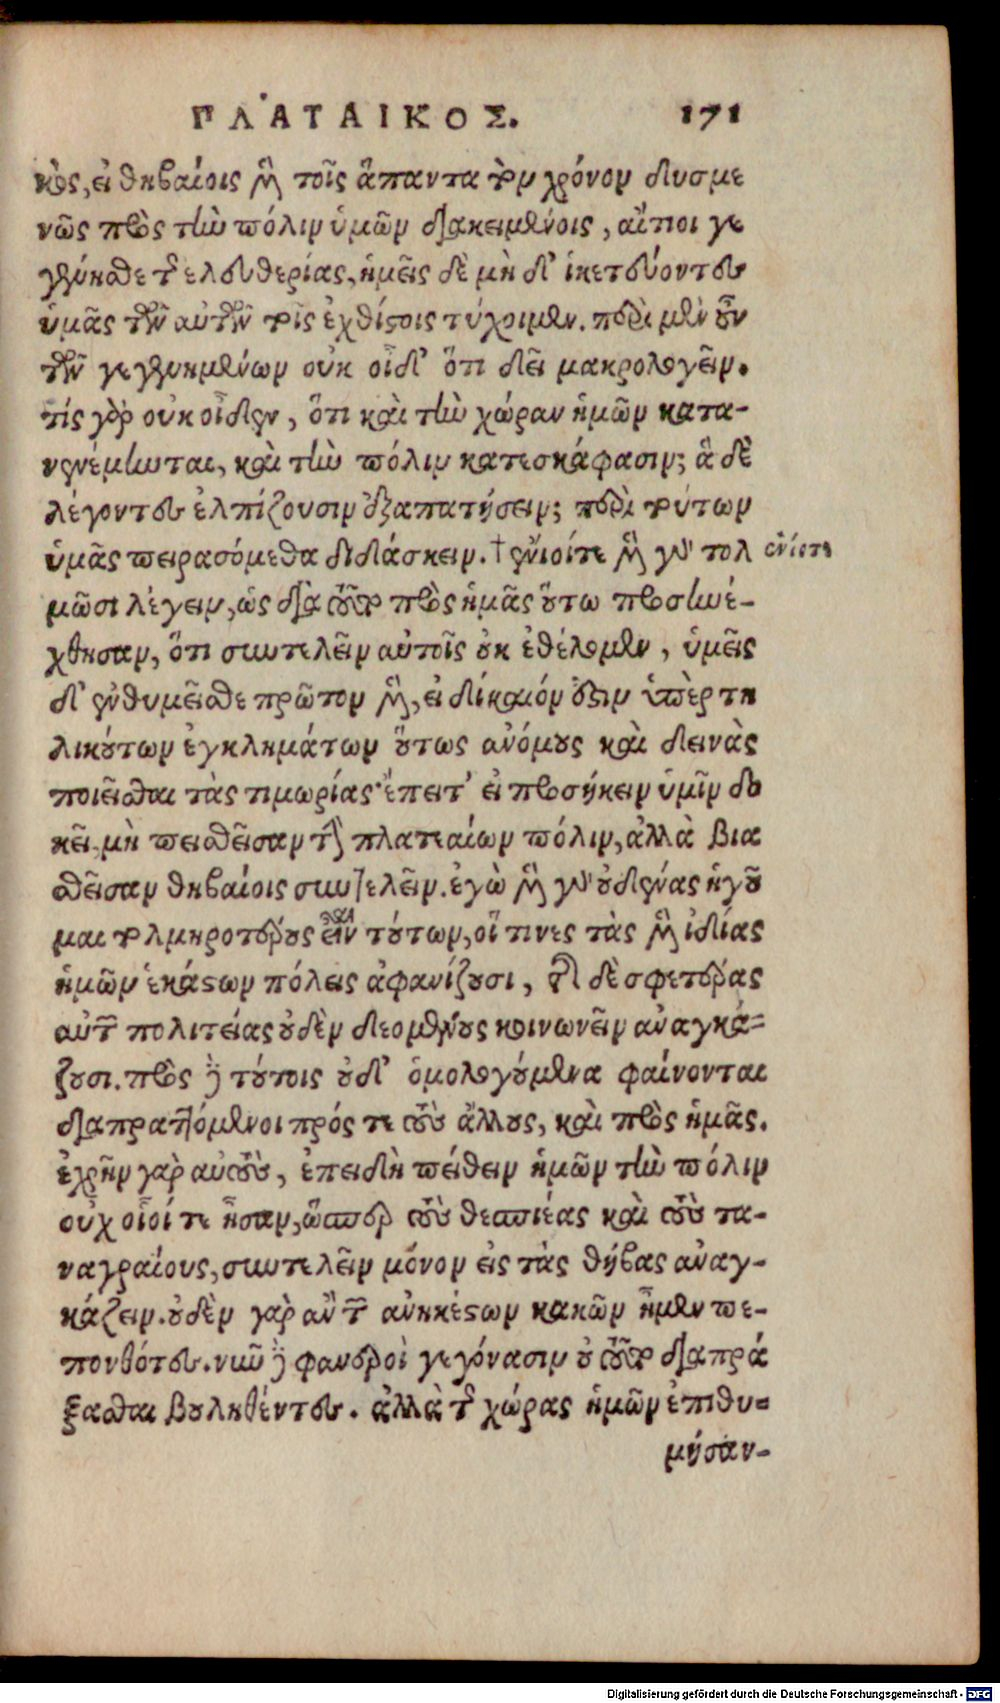 ΠΛΑΤΑΙΚΟΣ. 171
κὸς, εἰ θηβαίοις μὲν τοῖς ἅπαντα τὸν χρόνον δυσμε
νῶς πρὸς τὴν πόλιν ὑμῶν διακειμένοις, αἴτιοι γε
γένησθε τῆς ελευθερίας, ἡμεῖς δὲ μὴ δ' ἱκετεύοντες
ὑμᾶς τῶν αὐτῶν τοῖς ἐχθίστοις τύχοιμεν. περὶ μὲν οὖν
τῶν γεγενημένων οὐκ οἶδ' ὅτι δεῖ μακρολογεῖν.
τίς γὰρ οὐκ οἶδεν, ὅτι καὶ τὴν χώραν ἡμῶν κατα-
νενέμηνται, καὶ τὴν πόλιν κατεσκάφασιν; ἃ δὲ
λέγοντες ἐλπίζουσιν ἐξαπατήσειν; περὶ τούτων
ὑμᾶς πειρασόμεθα διδάσκειν. † ἔνιοί τε μὲν γὰρ τολ ἐνίοτε
μῶσι λέγειν, ὡς διὰ τοῦτο πρὸς ἡμᾶς οὕτω προσηνέ-
χθησαν, ὅτι συντελεῖν αὐτοῖς οὐκ ἐθέλομεν, ὑμεῖς
δ' ἐνθυμεῖσθε πρῶτον μὲν, εἰ δίκαιόν ἐστιν ὑπὲρ τη
λικούτων ἐγκλημάτων οὕτως ἀνόμους καὶ δεινὰς
ποιεῖσθαι τὰς τιμωρίας· ἔπειτ' εἰ προσήκειν ὑμῖν δο
κεῖ, μὴ πεισθεῖσαν τὴν πλαταιέων πόλιν, ἀλλὰ βια
σθεῖσαν θηβαίοις συντελεῖν. ἐγὼ μὲν γὰρ οὐδένας ἡγοῦ
μαι τολμηροτέρους εἶναι τούτων, οἵ τινες τὰς μὲν ἰδίας
ἡμῶν ἑκάστων πόλεις ἀφανίζουσι, τῆς δὲ σφετέρας
αὐτῶν πολιτείας οὐδὲν δεομένους κοινωνεῖν ἀναγκά=
ζουσι. πρὸς δὲ τούτοις οὐδ' ὁμολογούμενα φαίνονται
διαπραττόμενοι πρός τε τοὺς ἄλλους, καὶ πρὸς ἡμᾶς.
ἐχρῆν γὰρ αὐτοὺς, ἐπειδὴ πείθειν ἡμῶν τὴν πόλιν
οὐχ οἷοί τε ἦσαν, ὥσπερ τοὺς θεσπιέας καὶ τοὺς τα-
ναγραίους, συντελεῖν μόνον εἰς τὰς θήβας ἀναγ-
κάζειν. οὐδὲν γὰρ ἂν τῶν ἀνηκέστων κακῶν ἦμεν πε-
πονθότες. νῦν δὲ φανεροὶ γεγόνασιν οὐ τοῦτο διαπρά
ξασθαι βουληθέντες. ἀλλὰ τῆς χώρας ἡμῶν ἐπιθυ=
μήσαν-
Digitalisierung gefördert durch die Deutsche Forschungsgemeinschaft - DFG